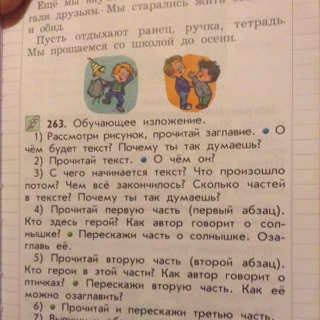 Ещё мы нау
гали друзьям. Мы старались жить
и обид.
Пусть отдыхают ранец, ручка, тетрадь.
Мы прощаемся со школой до осени.
263. Обучающее изложение.
1) Рассмотри рисунок, прочитай заглавие. • О
чём будет текст? Почему ты так думаешь?
2) Прочитай текст. • О чём он?
3) С чего начинается текст? Что произошло
потом? Чем всё закончилось? Сколько частей
в тексте? Почему ты так думаешь?
4) Прочитай первую часть (первый абзац).
Кто здесь герой? Как автор говорит о сол-
нышке? • Перескажи часть о солнышке. Оза-
главь её.
5) Прочитай вторую часть (второй абзац).
Кто герои в этой части? Как автор говорит о
птичках? • Перескажи вторую часть. Как её
можно озаглавить?
6) • Прочитай и перескажи третью часть.
7)